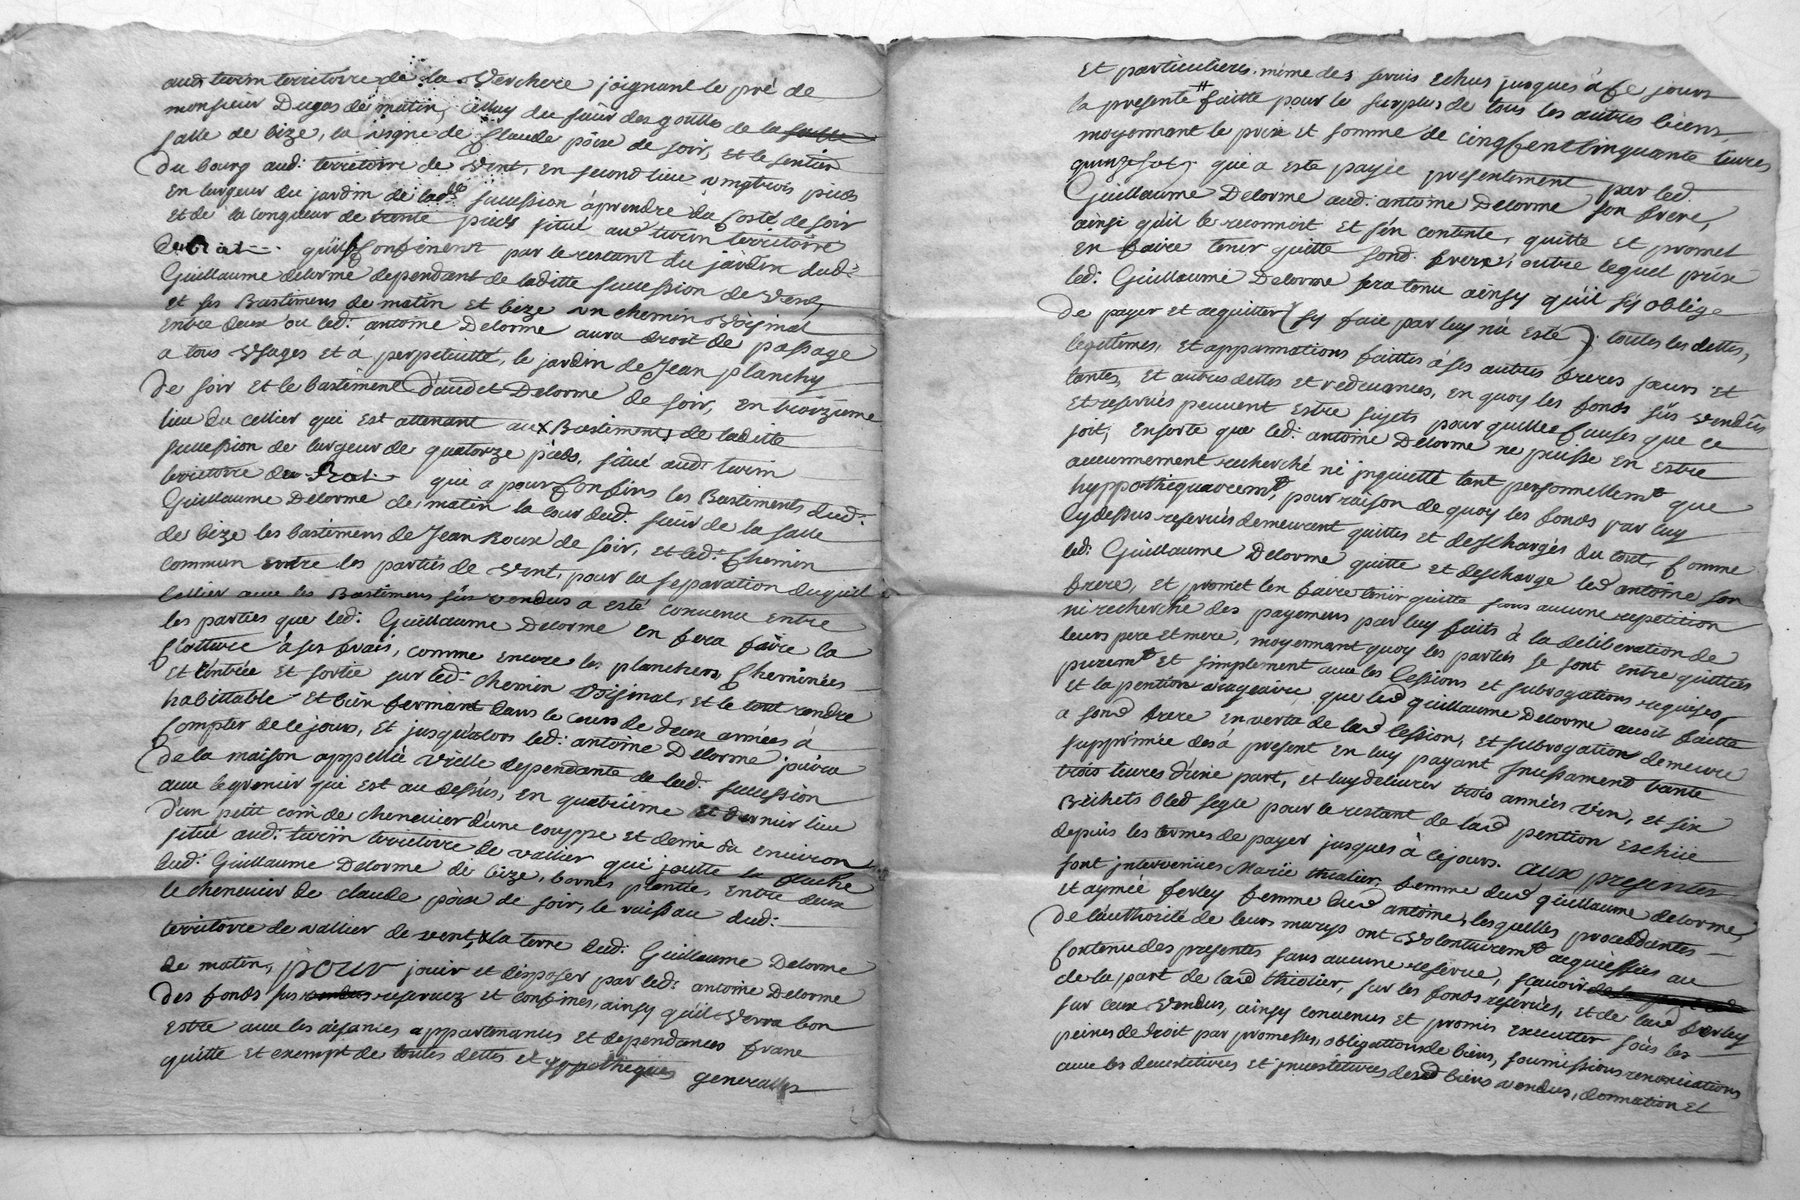 aud. turin territoire de la Verchere joignant le pré de
monsieur Dugas de matin, celluy du sieur des goutles de la
salle de bize, la vigne de Claude pôize de soir, et le sentier
du bourg aud. territoire de vent, en second lieu vingtrois pieds
en largeur du jardin de lad. sucession à prendre du costé de soir
et de la longueur de trante pieds situé aud. turin territoire
du Crat qu'ils confinent par le restant du jardin dud.
Guillaume delorme dependant de laditte sucession de vent,
et ses Bastimens de matin et bize un chemin voisinal
entre deux ou led. antoine Delorme aura droit de passage
a tous usages et à perpetuitté, le jardin de Jean planchy
de soir et le bastiment d'audet Delorme de soir, en troizieme
lieu du cellier qui est attenant aux Bastiments de laditte
sucession de largeur de quatorze pieds, situé aud. turin
territoire du Crat qui a pour confins les Bastiments dud.
Guillaume Delorme de matin la cour dud. sieur de la salle
de bize les bastimens de Jean Roux de soir, et led. Chemin
commun entre les parties de vent, pour la separation duquel
Cellier avec les Bastimens sus vendus a esté convenu entre
les parties que led. Guillaume Delorme en fera faire la
Cloture à ses frais, comme encore les planchers Cheminées
et l'entrée et sortie sur led. chemin voisinal, et le tout rendre
habittable et bien fermant dans le cours de deux années à
Compter de ce jours, et jusqu'alors led. antoine Delorme jouira
de la maison appellée vielle dependante de lad. sucession
avec le grenier qui est au dessus, en quatrieme et dernier lieu
d'un petit coin de chenevier d'une couppe et demie ou environ
situé aud. turin territoire de vallier qui joutte la
dud. Guillaume Delorme de bize, bornes plantée entre deux
le chenevier de claude pôize de soir, le ruissau dud.
territoire de vallier de vent, & la terre dud. Guillaume Delorme
de matin, pour jouir et disposer par led. antoine Delorme
des fonds sus reservez et confinés, ainsy qu'il verra bon
estre avec les aisances appartenances et dependances franc
quitte et exempt de toutes dettes et yppotheques generalles
et particulieres, même des servis echus jusques à ce jours
la presente # faitte pour le surplus de tous les autres biens
moyennant le prix et somme de cinq cent cinquante livres
quinze sols qui a esté payée presentement par led.
Guillaume Delorme aud. antoine Delorme son frere,
ainsi qu'il le reconnoit et s'en contente, quitte et promet
en faire tenir quitte sond. frere, outre lequel prix
led. Guillaume Delorme sera tenu ainsy qu'il s'y oblige
de payer et acquitter (sy fait par luy n'a esté) toutes les dettes,
legittimes, et appannations faittes à ses autres freres sœurs et
tantes, et autres dettes et redevances, en quoy les fonds sus vendus
et reservés peuvent estre sujets pour quelle Causes que ce
soit, ensorte que led. antoine Delorme ne puisse en estre
aucunnement recherché ni inquietté tant personnellemt que
hyppothequairemt, pour raison de quoy les fonds par luy
Cy dessus reservés demeurent quittes et deschargés du tout, Comme
led. Guillaume Delorme quitte et descharge led antoine son
frere, et promet l'en faire tenir quitte sans aucune repetition
ni recherche des payemens par luy faits à la deliberation de
leurs pere et mere, moyennant quoy les parties se sont entre quittées
puremt et simplement avec les Cessions et subrogations requises,
et la pention viageaire que led guillaume Delorme avoit faitte
a sond frere en vertu de lad cession, et subrogation demeure
supprimée des à present en luy payant incessament trante
trois livres d'une part, et luy delivrer trois années vin, et six
Bichets bled segle pour le restant de lad pention eschüe
depuis les termes de payer jusques à ce jours. aux presentes
sont intervenües Marie thiolier femme dud guillaume delorme,
et aymée ferley femme dud antoine, lesquelles procedantes
de l'authorité de leurs marys ont volontairemt acquiessées au
Contenu des presentes sans aucune reserve, scavoir
de la part de lad thiolier, sur les fonds reservés, et de lad ferley
sur ceux vendus, ainsy convenus et promis executter sous les
peines de droit par promesses, obligation de biens, soumissions renonciations
avec les devestitures et investitures desd biens vendus, donnation et